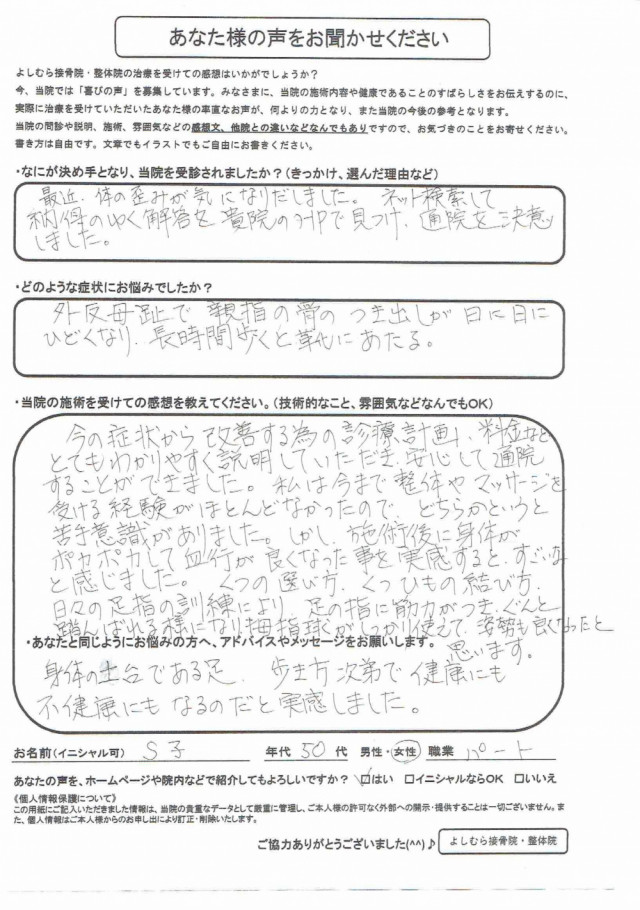 あなた様の声をお聞かせください
よしむら接骨院・整体院の治療を受けての感想はいかがでしょうか？
今、当院では「喜びの声」を募集しています。みなさまに、当院の施術内容や健康であることのすばらしさをお伝えするのに、
実際に治療を受けていただいたあなた様の率直なお声が、何よりの力となり、また当院の今後の参考となります。
当院の問診や説明、施術、雰囲気などの感想文、他院との違いなどなんでもありですので、お気づきのことをお寄せください。
書き方は自由です。文章でもイラストでもご自由にお書きください。
・なにが決め手となり、当院を受診されましたか？（きっかけ、選んだ理由など）
最近、体の歪みが気になりだしました。ネット検索して
納得のゆく解答を貴院のHPで見つけ、通院を決意
しました。
・どのような症状にお悩みでしたか？
外反母趾で親指の骨のつき出しが日に日に
ひどくなり、長時間歩くと靴にあたる。
・当院の施術を受けての感想を教えてください。（技術的なこと、雰囲気などなんでもOK）
今の症状から改善する為の診療計画、料金など
とてもわかりやすく説明していただき安心して通院
することができました。私は今まで整体やマッサージを
受ける経験がほとんどなかったので、どちらかというと
苦手意識がありました。しかし、施術後に身体が
ポカポカして血行が良くなった事を実感すると、すごいな
と感じました。くつの選び方、くつひもの結び方、
日々の足指の訓練により、足の指に筋力がつき、ぐんと
踏んばれる様になり拇指球がしっかり使えて、姿勢も良くなったと
思います。
・あなたと同じようにお悩みの方へ、アドバイスやメッセージをお願いします。
身体の土台である足、歩き方次第で健康にも
不健康にもなるのだと実感しました。
お名前（イニシャル可） S子 年代 50 代 男性・女性 職業 パート
あなたの声を、ホームページや院内などで紹介してもよろしいですか？ ☑はい □イニシャルならOK □いいえ
《個人情報保護について》
この用紙にご記入いただきました情報は、当院の貴重なデータとして厳重に管理し、ご本人様の許可なく外部への開示・提供することは一切ございません。ま
た、個人情報はご本人様からのお申し出により訂正・削除いたします。
ご協力ありがとうございました(^^)♪ よしむら接骨院・整体院